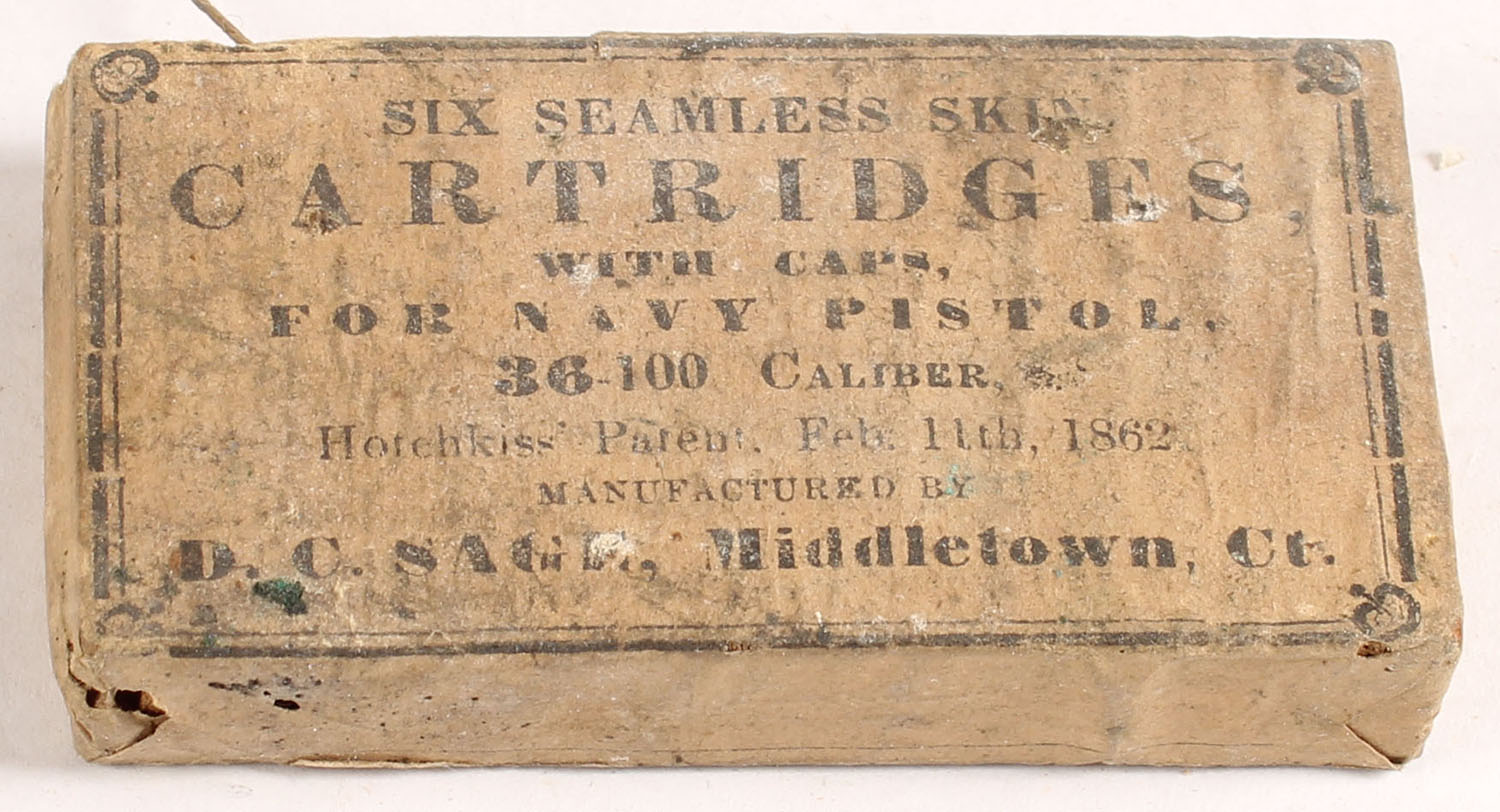 SIX SEAMLESS SKIN
CARTRIDGES,
WITH CAPS,
FOR NAVY PISTOL.
36-100 CALIBER,
Hotchkiss' Patent, Feb. 11th, 1862.
MANUFACTURED BY
D. C. SAGE, Middletown, Ct.